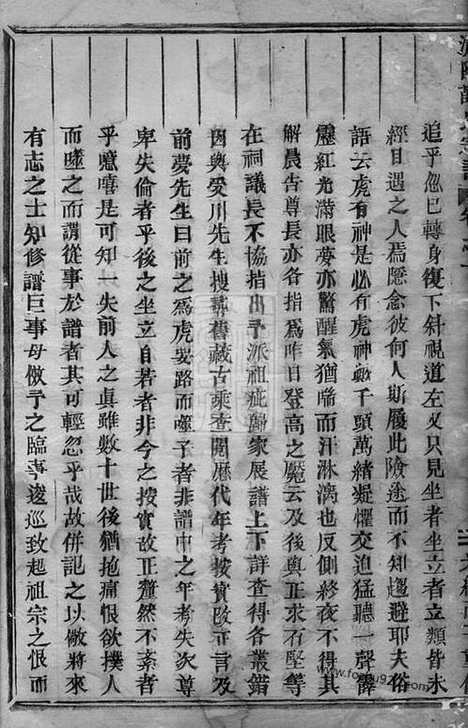 追乎忽已轉身復下斜視道左又只見坐者坐立者立類皆未
經目遇之人焉隱念彼何人斯履此險途而不知趨避耶夫俗
語云虎有神是必有虎神歟千頭萬緒疑懼交迫猛聽一聲霹
靂紅光滿眼夢亦驚醒氣猶喘而汗淋漓也反側終夜不得其
解晨告尊長亦各指為昨日登高之魘云及後與正求有堅等
在祠議長不協指出予派祖症歸家展譜上下詳查得各叢錯
因與受川先生搜尋舊藏古乘查閱歷代年考按實改正言及
前夢先生曰前之為虎要路而噬子者非譜中之年考失次尊
卑失倫者乎後之坐立自若者非今之按實故正釐然不紊者
乎噫嘻是可知一失前人之真雖數十世後猶抱痛恨欲撲人
而噬之而謂從事於譜者其可輕忽乎哉故併記之以儆將來
有志之士知修譜巨事毋倣予之臨事逡巡致起祖宗之恨而